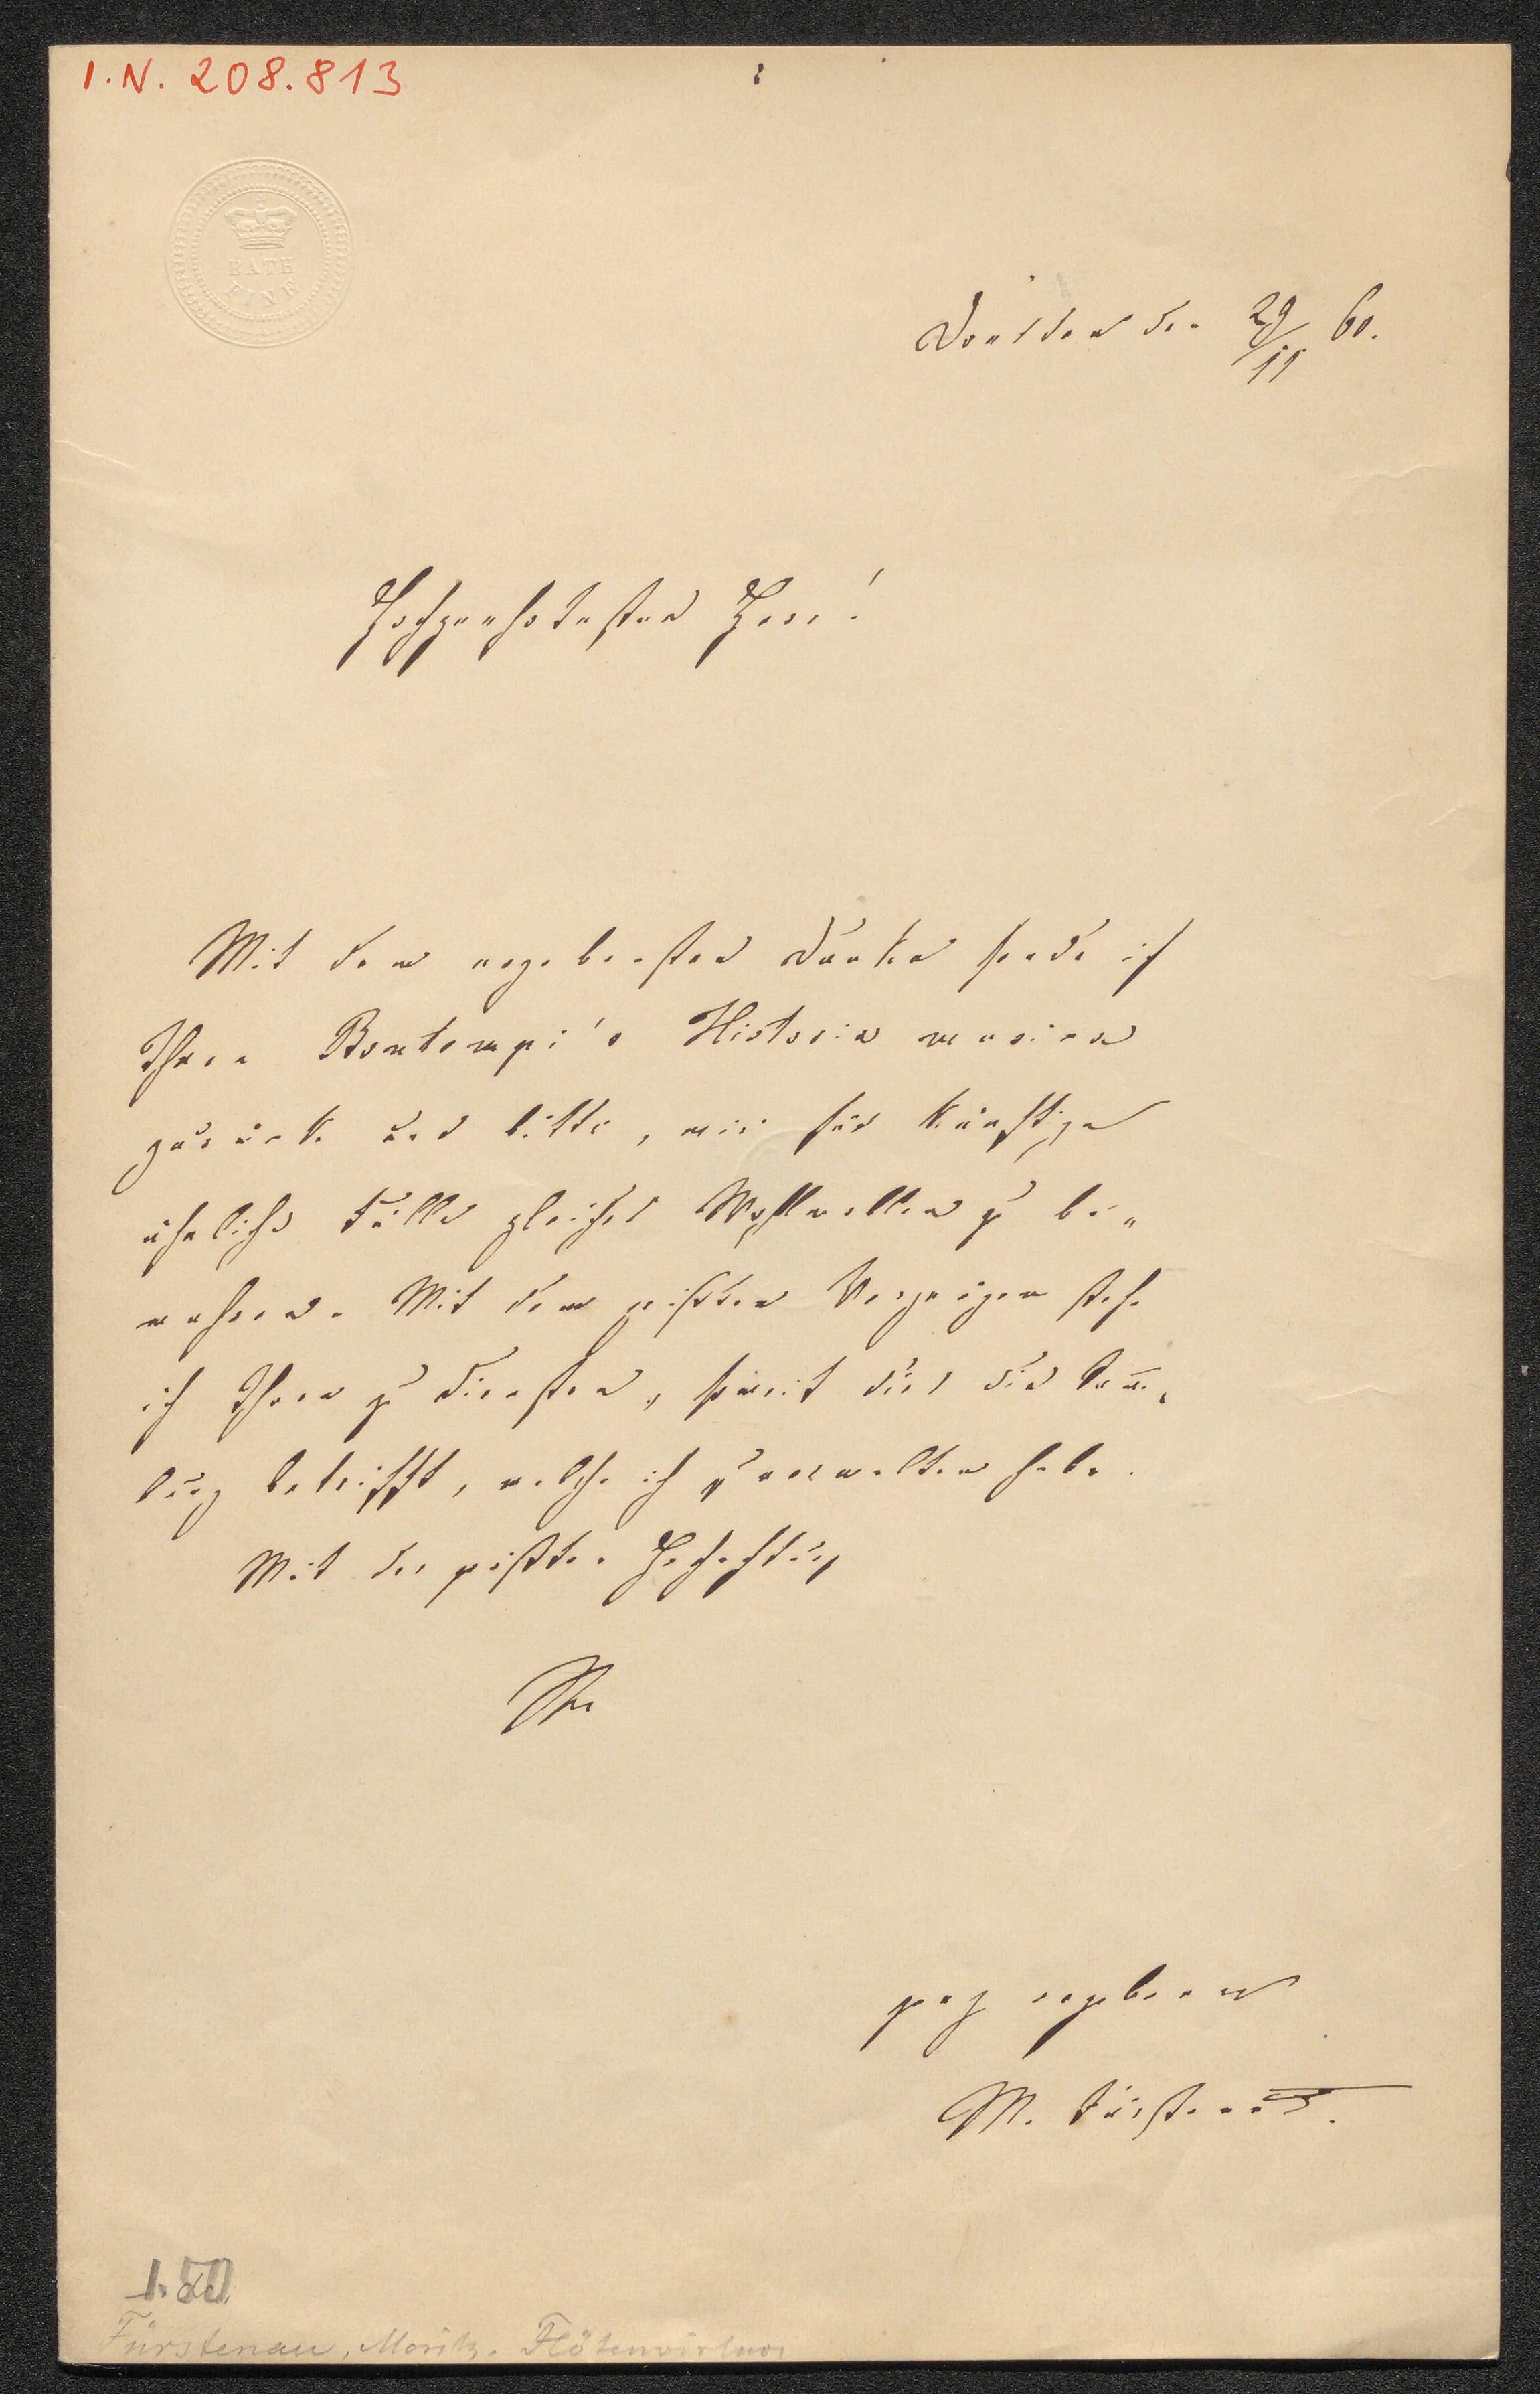 I.N. 208.813
BATH
FINE
Dresden den 29/11 60.
Hochgeehrtester Herr!
Mit dem ergebensten Danke sende ich
Ihnen Bontempi's Historia musica
zurück und bitte, mir für künftige
ähnliche Fälle gleiches Wohlwollen zu be-
wahren. Mit dem größten Vergnügen stehe
ich Ihnen zu Diensten, soweit dies die Samm-
lung betrifft, welche ich zu verwalten habe.
Mit der größten Hochachtung
Ihr
ganz ergebener
M. Fürstenau.
1.50
Fürstenau, Moritz. Flötenvirtuos